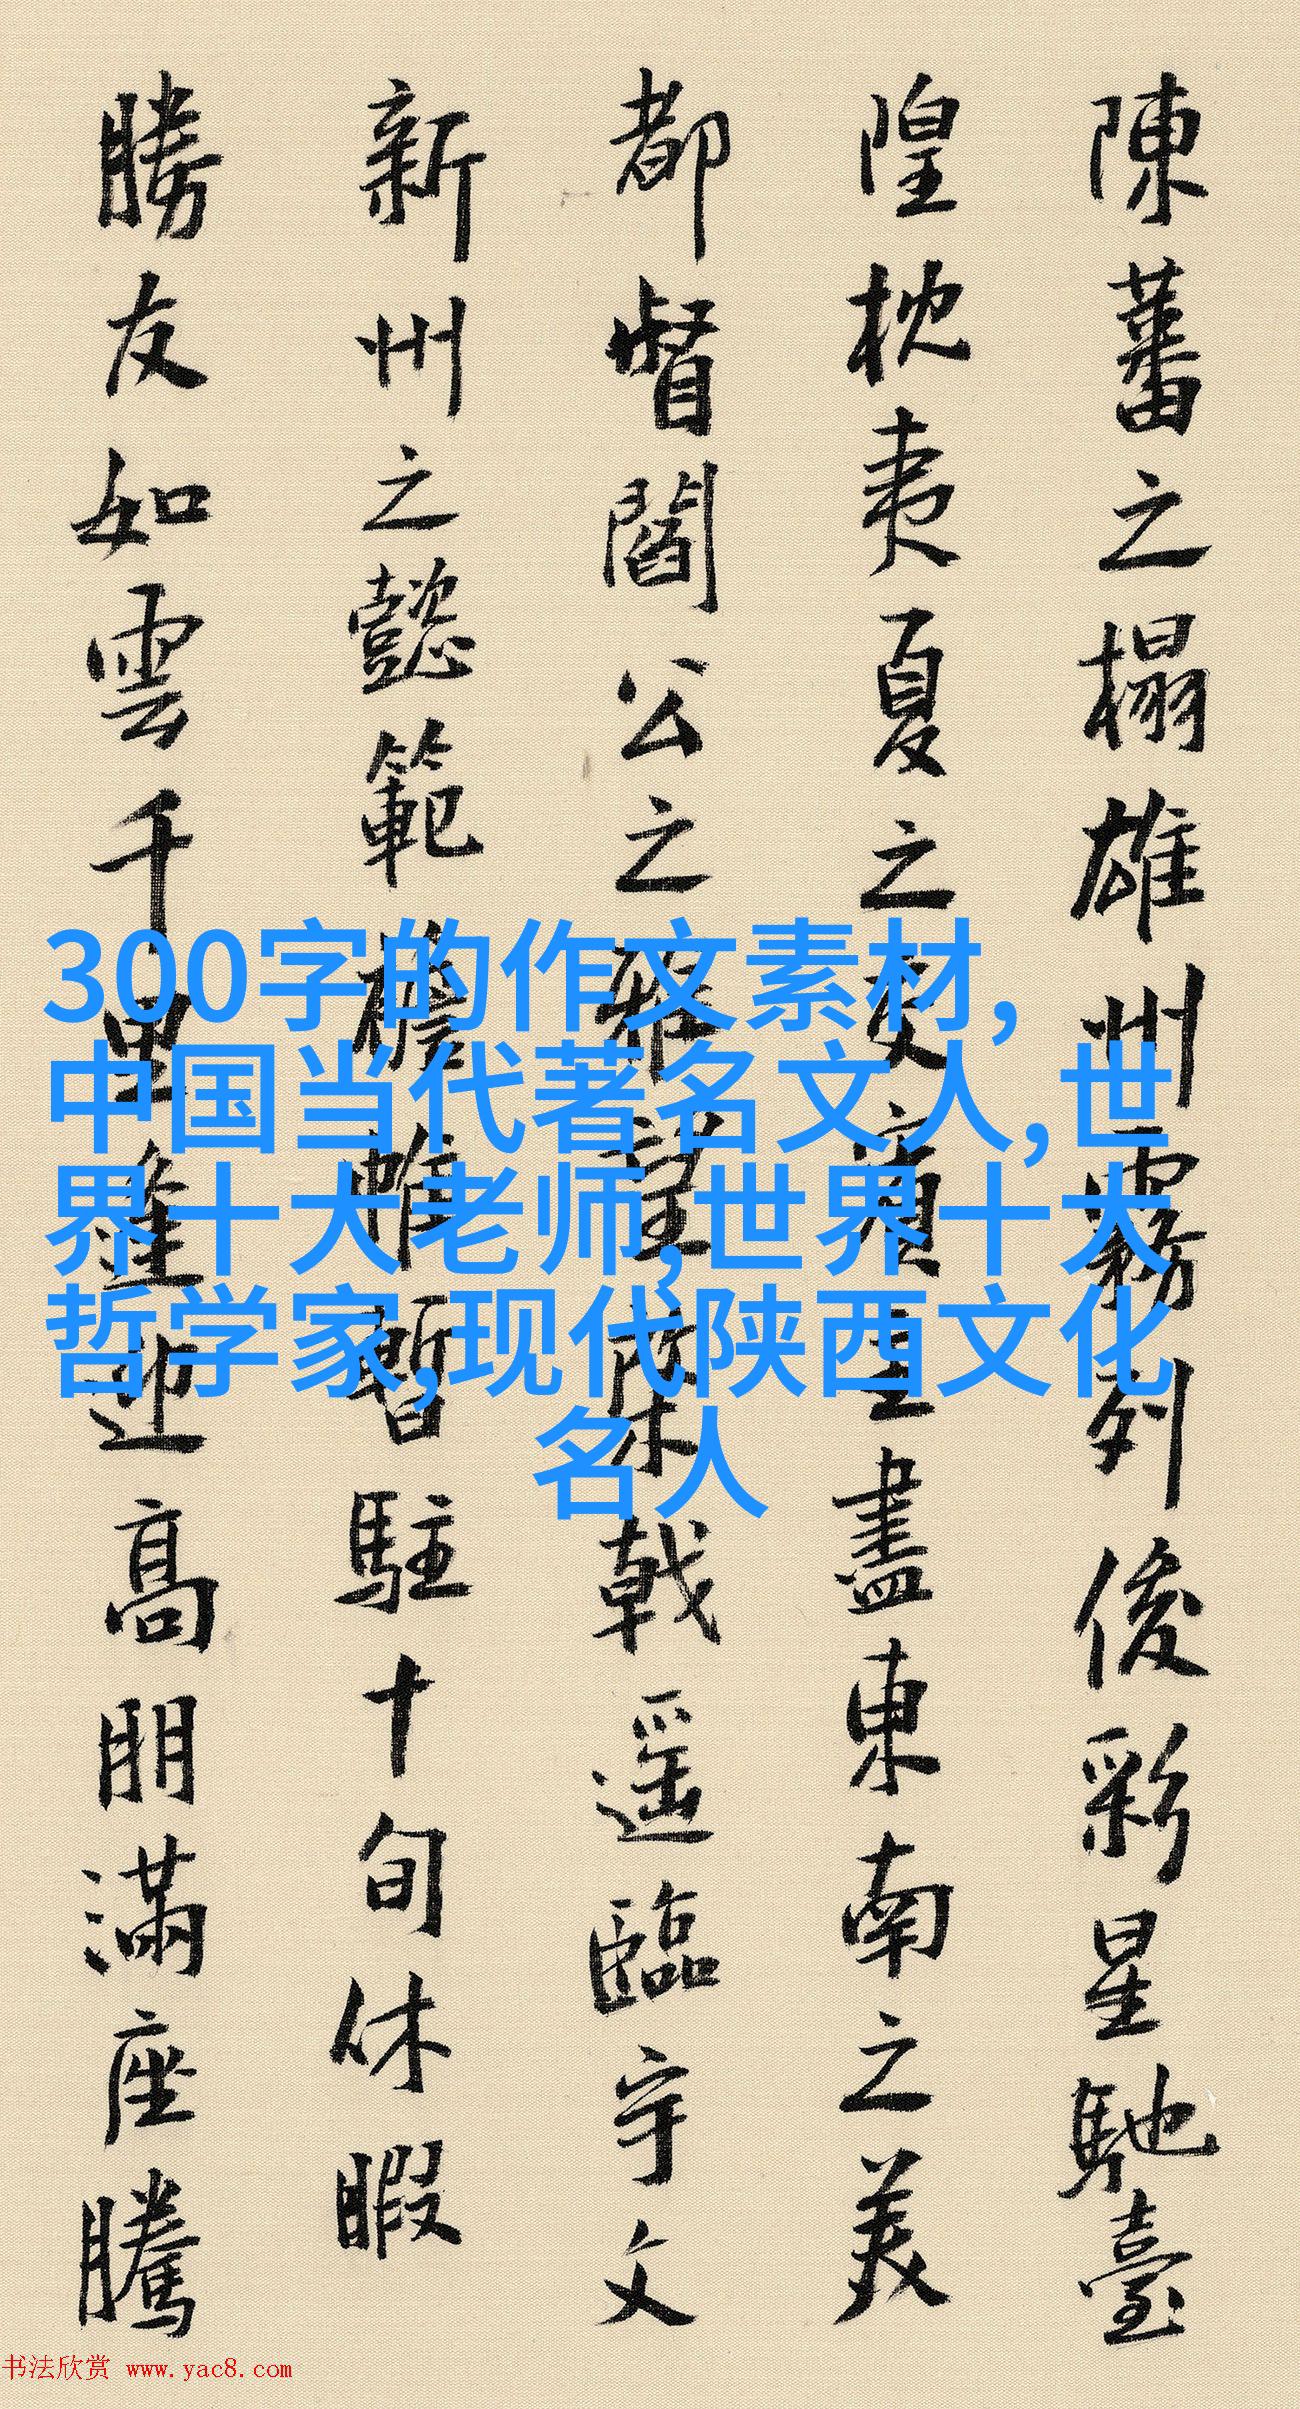 陳蕃之榻雄州霧列俊彩星馳臺
隍枕夷夏之交賓主盡東南之美
都督閻公之雅望棨戟遥臨宇文
新州之懿範襜帷暫駐十旬休暇
勝友如雲千里逢迎高朋滿座騰
300字的作文素材,
中国当代著名文人,世
界十大老师,世界十大
哲学家,现代陕西文化
名人
书法欣赏 www.yac8.com